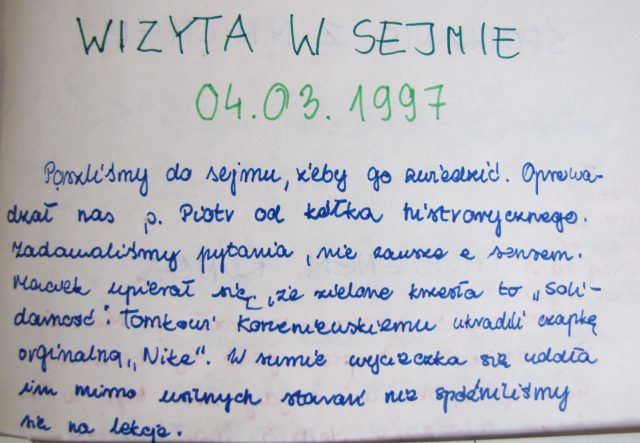 WIZYTA W SEJMIE
04.03.1997
Poszliśmy do sejmu, żeby go zwiedzić. Oprowa-
dzał nas p. Piotr od kółka histrorycznego.
Zadawaliśmy pytania, nie zawsze z sensem.
Maciek upierał się, że zielone krzesła to „Soli-
darność". Tomkowi Korzeniewskiemu ukradli czapkę
orginalną „Nike". W sumie wycieczka się udała
im mimo usilnych starań nie spóźniliśmy
się na lekcje.